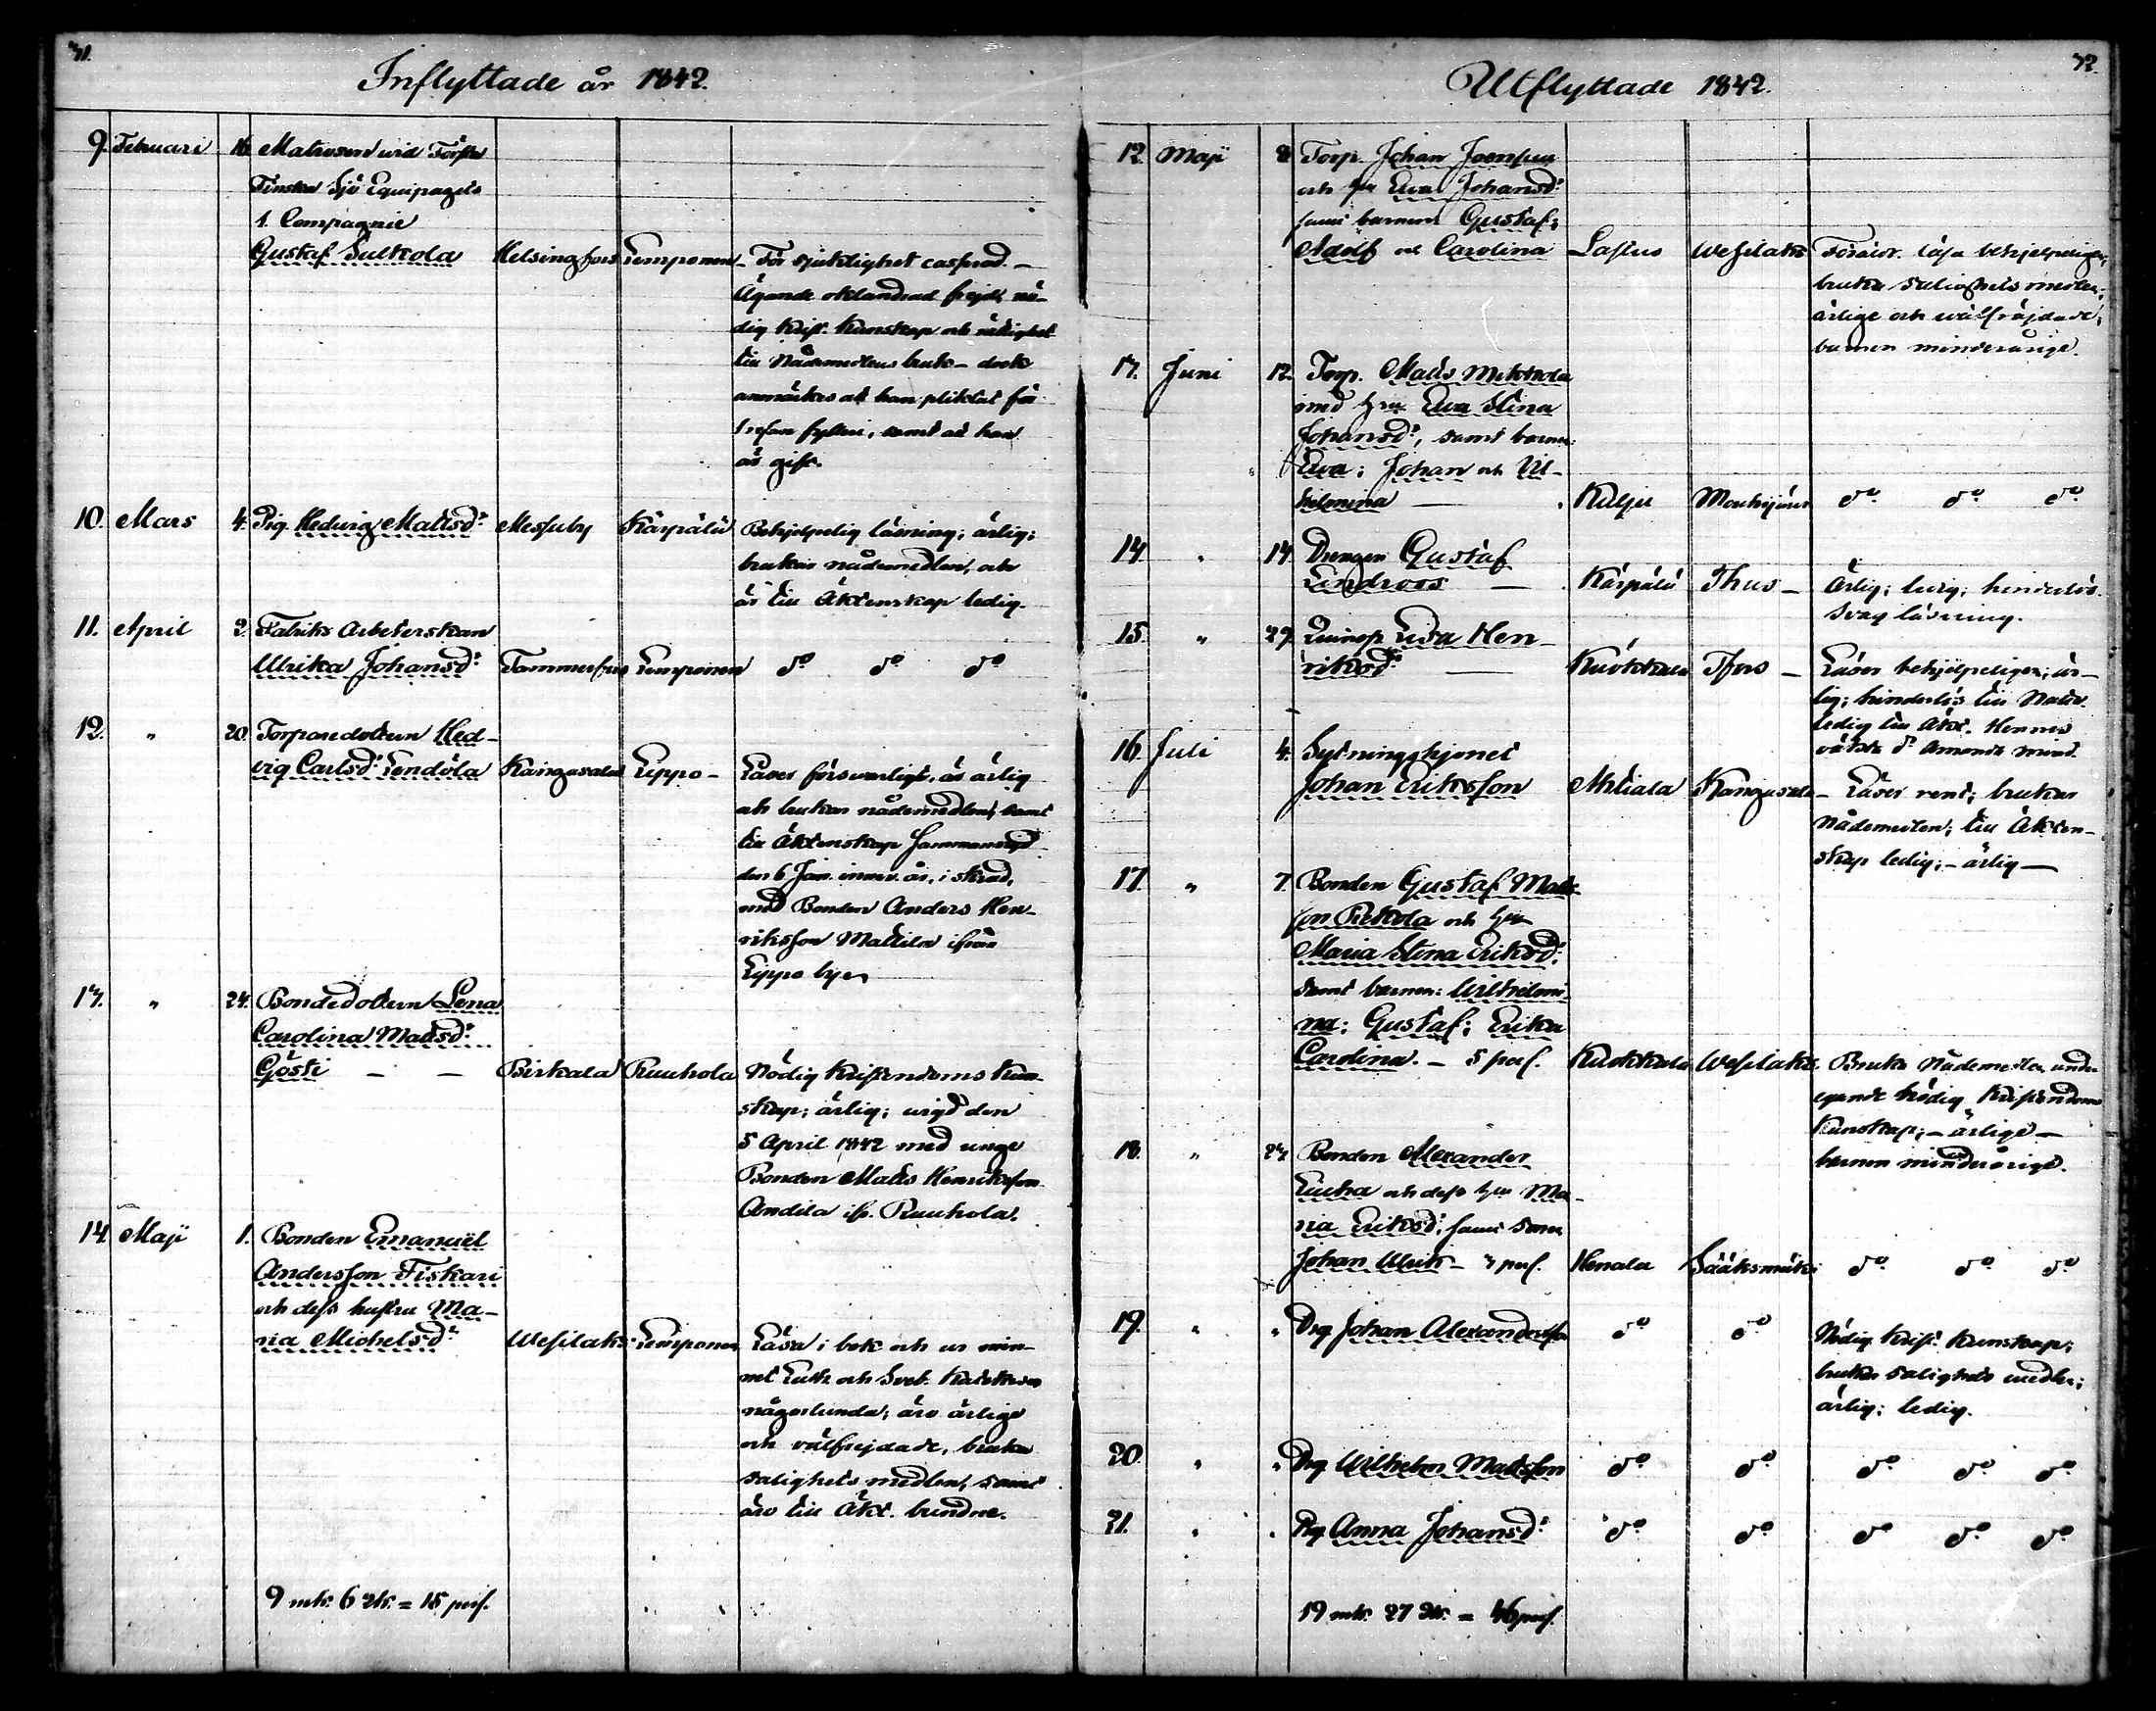 71.
Inflyttade år 1842.
9. Februari 16. Matrosen wid Första
Finska Sjö Equipagets
1. Compagnie
Gustaf Sulkola Helsingfors Lemponen För sjuklighet casserad. –
Ägande oklandrad frejd, nö-
dig krist. kunskap och rättighet
till Nådemedlens bruk – dock
anmärkes att han pliktat för
1 resan fylleri, samt att han
är gift.
10. Mars 4. Pig. Hedvig Mattsd:r Messuby Kärpälä Behjelpelig läsning; ärlig;
brukar nådemedlen, och
är till Äktenskap ledig.
11. April 2. Fabriks Arbeterskan
Ulrika Johansd:r Tammerfors Lemponen d:o d:o d:o
12. " 20. Torparedottern Hed-
vig Carlsd:r Kangasala Lippo – Läser försvarligt, är ärlig
och brukar nådemedlen, samt
till Äktenskap sammanvigd
den 6 Jan. innev. år, i skrud,
med Bonden Anders Hen-
riksson Mattila ifrån
Lippo by.
13. " 24. Bondedottern Lena
Carolina Mattsd:r
Gösti – – Birkala Ruuhola Nödig Kristendoms kun-
skap; ärlig; vigd den
5 April 1842 med unge
Bonden Matts Henriksson
Andila ifr. Ruuhola.
14. Maji 1. Bonden Emanuël
Andersson Fiskari
och dess hustru Ma-
ria Michelsd:r Wesilaks Lemponen Läsa i bok och ur min-
net Luth. och Sveb. Katekeser
någorlunda; äro ärlige
och välfrejdade, bruka
salighets medlen, samt
äro till Äkt. bundne.
9 mk. 6 qk. = 15 pers.
72.
Utflyttade 1842.
12. Maji 8. Torp. Johan Joensuu
och hu Eva Johansd:r
samt barnen Gustaf;
Adolf och Carolina Lastus Wesilaks Föräldr. läsa behjelpeligen;
bruka salighets medlen;
ärlige och wälfräjdade;
barnen minderårige.
13. Juni 12. Torp. Matts Mikkola
med hu Eva Stina
Johansd:r, samt barnen:
Eva; Johan och Vil-
helmina – Kulju Mouhijärvi d:o d:o d:o
14. " 14. Drengen Gustaf
Lindroos – Kärpälä Thus – Ärlig; ledig; hinderlös.
Svag läsning.
15. " 29. Quinsp. Lisa Hen-
riksd:r – Kuokkala Tfors – Läser behjelpeligen; är-
lig; hinderlös till Nattv.
ledig till Äkt. Hennes
oäkta d:r Amanda mind.
16. Juli 4. Sytningshjonet
Johan Eriksson Ahtiala Kangasala – Läser rent; brukar
Nådemedlen; till Äkten-
skap ledig; – ärlig –
17. " 7. Bonden Gustaf Matts-
son Pietola och hu
Maria Stina Eriksd:r
samt barnen: Wilhelmi-
na; Gustaf; Erika
Carolina. – 5 pers. Kuokkala Wesilaks. Bruka Nådemedlen under
egande nödig Kristendoms
Kunskap; – ärlige –
barnen minderårige.
18. " 27. Bonden Alexander
och dess hu Ma-
ria Eriksd:r samt sonen
Johan Ulrik – 3 pers. Henala Sääksmäki d:o d:o d:o
19. " " Drg Johan Alexandersson d:o d:o Nödig Krist. kunskap;
brukar salighets medlen;
ärlig; ledig.
20. " " Drg Wilhelm Mattsson d:o d:o d:o d:o d:o
21. " " Pig. Anna Johansd:r d:o d:o d:o d:o d:o
19 mk. 27 qk. = 46 pers.